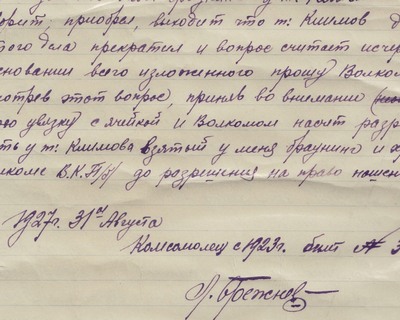 ворит, приобрел, выходит что т. Климов д
того дела прекратил и вопрос считает исчер
сновании всего изложенного прошу Волком
мотрев этот вопрос, приняв во внимание
ою увязку с ячейкой и Волкомом насчет разр
ть у т. Климова взятый у меня браунинг и хр
лкоме В.К.П/б/ до разрешения на право ношен
1927г. 31го Августа
Комсомолец с 1923г. билет № 3
Л. Брежнев